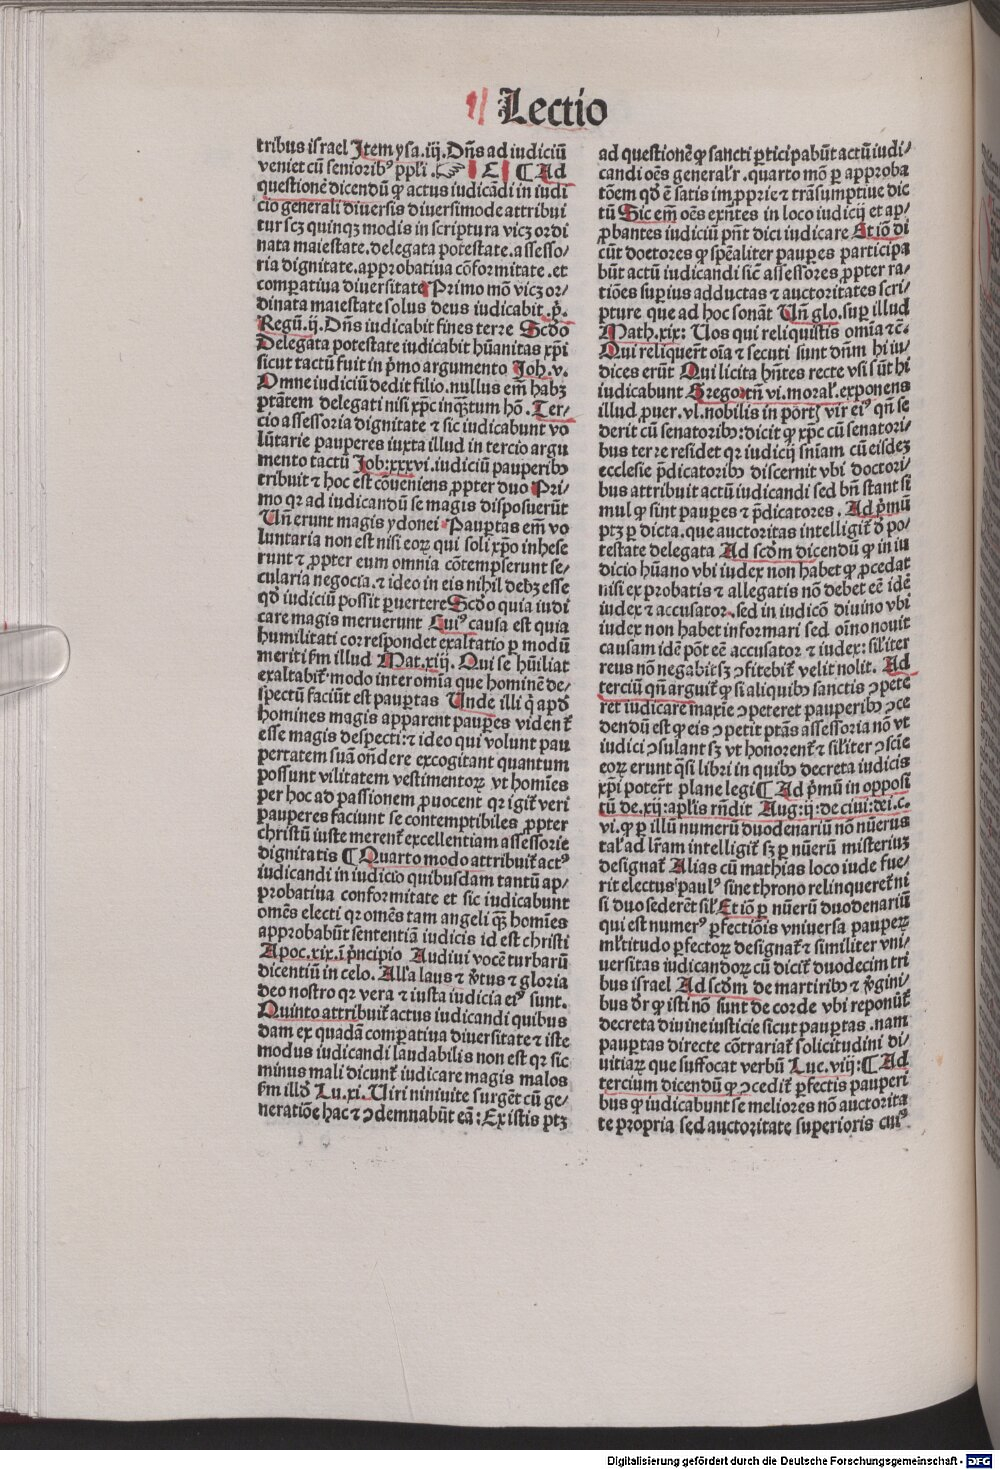 Lectio
tribus israel Item ysa.iij. Dñs ad iudiciũ
veniet cũ senioribꝰ ppl̃i. C ¶ Ad
questionẽ dicendũ ꝙ actus iudicãdi in iudi
cio generali diuersis diuersimode attribui
tur scꝫ quinqꝫ modis in scriptura vicꝫ ordi
nata maiestate.delegata potestate.assesso/
ria dignitate.approbatiua cõformitate.et
comꝑatiua diuersitate Primo mõ vicꝫ or/
dinata maiestate solus deus iudicabit.p̃.
Regũ.ij. Dñs iudicabit fines terre Scd̃o
Delegata potestate iudicabit hũanitas xp̃i
sicut tactũ fuit in p̃mo argumento Joh.v.
Omne iudiciũ dedit filio.nullus em̃ habꝫ
ptãtem delegati nisi xp̃c inqꝫtum hõ. Ter/
cio assessoria dignitate ⁊ sic iudicabunt vo
lũtarie pauperes iuxta illud in tercio argu
mento tactũ Job:xxxvi.iudiciũ pauperibꝰ
tribuit ⁊ hoc est cõueniens ꝓpter duo Pri/
mo qꝛ ad iudicandũ se magis disposuerũt
Vñ erunt magis ydonei Pauꝑtas em̃ vo
luntaria non est nisi eoꝝ qui soli xp̃o inhese
runt ⁊ ꝓpter eum omnia cõtempserunt se/
cularia negocia.⁊ ideo in eis nihil debꝫ esse
qd̃ iudiciũ possit ꝑuertere Scd̃o quia iudi
care magis meruerunt Cuiꝰ causa est quia
humilitati correspondet exaltatio ꝑ modũ
meriti ẜm illud Mat.xiij. Qui se hũiliat
exaltabit̃·modo inter omĩa que hominẽ de/
spectũ faciũt est pauꝑtas Vnde illi q̃ apd̃
homines magis apparent pauꝑes vident̃
esse magis despecti:⁊ ideo qui volunt pau
pertatem suã oñdere excogitant quantum
possunt vilitatem vestimentoꝝ vt homĩes
per hoc ad passionem ꝓuocent qꝛ igit̃ veri
pauperes faciunt se contemptibiles ꝓpter
christũ iuste merent̃ excellentiam assessorie
dignitatis ¶ Quarto modo attribuit̃ actꝰ
iudicandi in iudicio quibusdam tantũ ap/
probatiua conformitate et sic iudicabunt
omẽs electi qꝛ omẽs tam angeli qꝫ homĩes
approbabũt sententiã iudicis id est christi
Apoc.xix.ĩ p̃ncipio Audiui vocẽ turbarũ
dicentiũ in celo. All̃a laus ⁊ v̾tus ⁊ gloria
deo nostro qꝛ vera ⁊ iusta iudicia eiꝰ sunt.
Quinto attribuit̃ actus iudicandi quibus
dam ex quadã comꝑatiua diuersitate ⁊ iste
modus iudicandi laudabilis non est qꝛ sic
minus mali dicunt̃ iudicare magis malos
ẜm illd̃ Lu.xi. Viri niniuite surgẽt cũ ge/
neratiõe hac ⁊ ↄdemnabũt eã: Ex istis ptꝫ
ad questionẽ ꝙ sancti ꝑticipabũt actũ iudi/
candi oẽs generalr̃. quarto mõ ꝑ approba
tõem qd̃ ẽ satis imꝓprie ⁊ trãsumptiue dic
tũ Sic em̃ oẽs exñtes in loco iudicij et ap/
ꝓbantes iudiciũ pñt dici iudicare Et iõ di
cũt doctores ꝙ spẽaliter pauꝑes participa
bũt actũ iudicandi sic̃ assessores ꝓpter ra/
tiões suꝑius adductas ⁊ auctoritates scri/
pture que ad hoc sonãt Vñ glo.suꝑ illud
Math.xix: Vos qui reliquistis omĩa ⁊c̃.
Qui reliquer̃t oĩa ⁊ secuti sunt dñm hi iu/
dices erũt Qui licita hñtes recte vsi sũt hi
iudicabunt Grego tñ vi.moral̃.exponens
illud ꝓuer.vl.nobilis in port̃ vir eiꝰ qñ se
derit cũ senatoribꝰ:dicit ꝙ xp̃c cũ senatori/
bus terre residet qꝛ iudicij sñiam cũ eisdeꝫ
ecclesie p̃dicatoribꝰ discernit vbi doctori/
bus attribuit actũ iudicandi sed bñ stant si̇
mul ꝙ sint pauꝑes ⁊ p̃dicatores. Ad p̃mũ
ptꝫ ꝑ dicta.que auctoritas intelligit̃ d̾ po/
testate delegata Ad scd̃m dicendũ ꝙ in iu
dicio hũano vbi iudex non habet ꝙ ꝓcedat
nisi ex probatis ⁊ allegatis nõ debet eẽ idẽ
iudex ⁊ accusator.sed in iudicõ diuino vbi
iudex non habet informari sed oĩno nouit
causam idẽ põt eẽ accusator ⁊ iudex:sil̃iter
reus nõ negabit sꝫ ↄfitebit̃ velit nolit. Ad
terciũ qñ arguit̃ ꝙ si aliquibꝰ sanctis ↄpete
ret iudicare maxĩe ↄpeteret pauperibꝰ ↄce
dendũ est ꝙ eis ↄpetit ptãs assessoria nõ vt
iudici ↄsulant sꝫ vt honorent̃ ⁊ sil̃iter ↄsciẽ
eoꝝ erunt q̃si libri in quibꝰ decreta iudicis
xp̃i poter̃t plane legi ¶ Ad p̃mũ in opposi
tũ de.xij:apl̃is rñdit Aug:ij:de ciui:dei.c.
vi.ꝙ ꝑ illũ numerũ duodenariũ nõ nũerus
tal̃ ad lr̃am intelligit̃ sꝫ ꝑ nũerũ misteriuꝫ
designat̃ Alias cũ mathias loco iude fue/
rit electus paulꝰ sine throno relinqueret̃ ni
si duo sederẽt sil̃ Et iõ ꝑ nũerũ duodenariũ
qui est numerꝰ ꝑfectiõis vniuersa pauꝑeꝝ
ml̃titudo ꝑfectoꝝ designat̃ ⁊ similiter vni/
uersitas iudicandoꝝ cũ dicit̃ duodecim tri
bus israel Ad scd̃m de martiribꝰ ⁊ v̾gini/
bus dr̃ ꝙ isti nõ sunt de corde vbi reponũt̃
decreta diuine iusticie sicut pauꝑtas.nam
pauꝑtas directe cõtrariat̃ solicitudini di/
uitiaꝝ que suffocat verbũ Luc.viij:¶ Ad
tercium dicendũ ꝙ ↄcedit̃ ꝑfectis pauperi
bus ꝙ iudicabunt se meliores nõ auctorita
te propria sed auctoritate superioris cuiꝰ
Digitalisierung gefördert durch die Deutsche Forschungsgemeinschaft - DFG